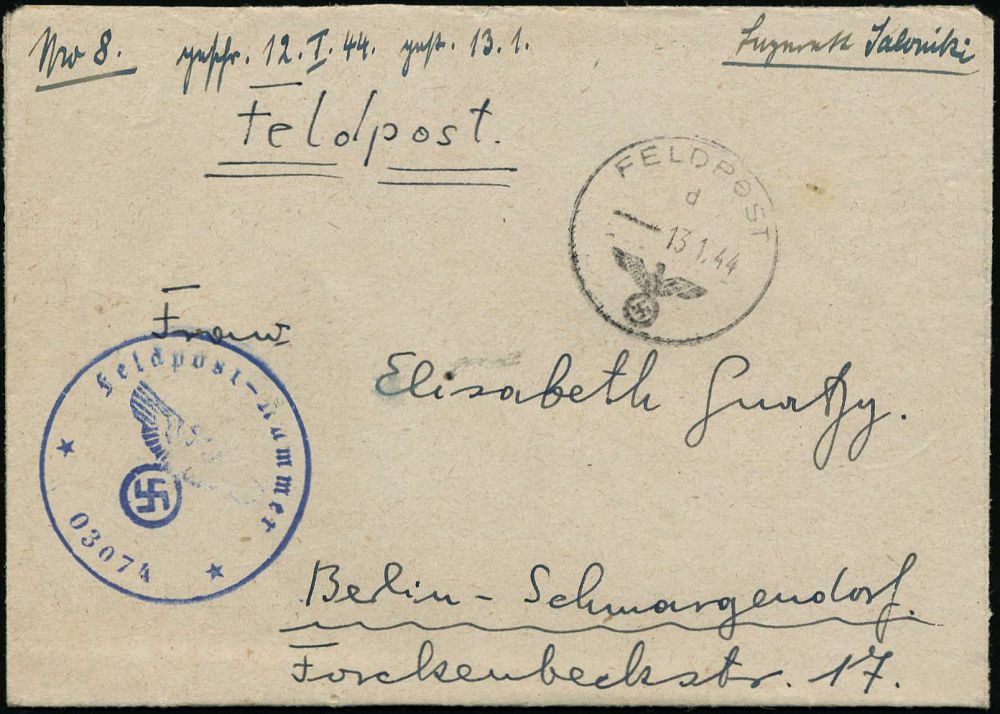 No 8. geschr. 12.I.44. gest. 13.1. Lazarett Saloniki
Feldpost.
FELDPOST
d
13.1.44
Frau
Elisabeth
Feldpost-Nummer
03074
Berlin-Schmargendorf.
Forckenbeckstr. 17.